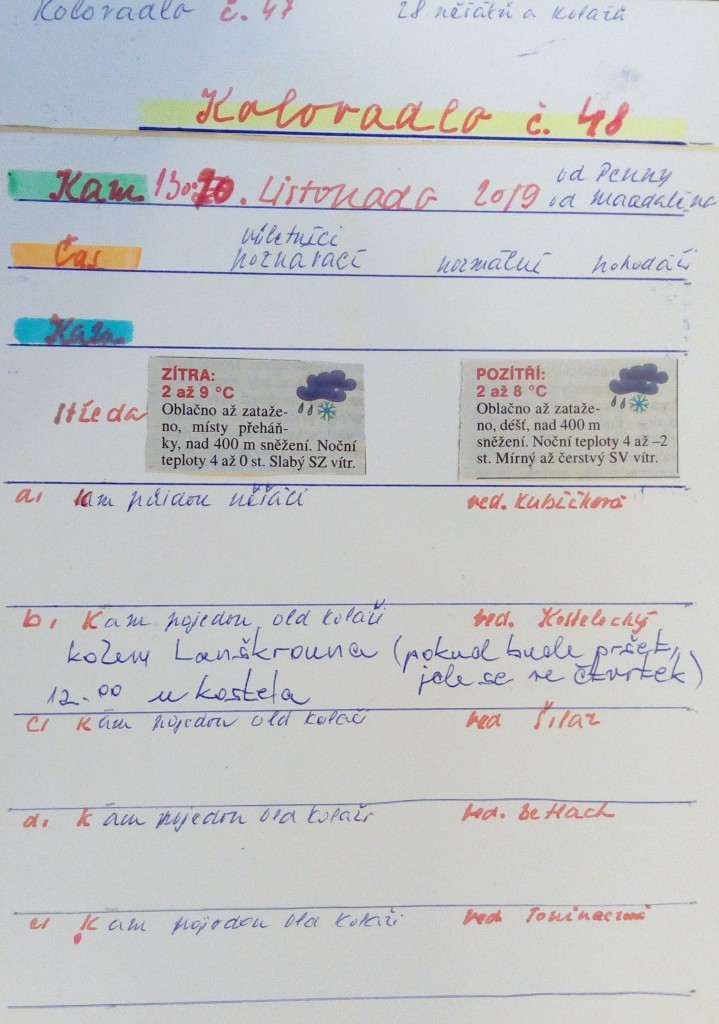 Koloradlo č. 47 28 pěšáků a kolařů
Koloradlo č. 48
Kam 13. Listopada 2019 od Penny
od Magdaléna
Čas výletníci
poznávací normální pohodáři
Kam
středa
ZÍTRA:
2 až 9 °C
Oblačno až zataže-
no, místy přeháň-
ky, nad 400 m sněžení. Noční
teploty 4 až 0 st. Slabý SZ vítr.
POZÍTŘÍ:
2 až 8 °C
Oblačno až zataže-
no, déšť, nad 400 m
sněžení. Noční teploty 4 až –2
st. Mírný až čerstvý SV vítr.
a, kam půjdou pěšáci ved. Kubíčková
b, Kam pojedou old kolaři ved. Kostelecký
kolem Lanškrouna (pokud bude pršet,
jede se ve čtvrtek)
12.00 u kostela
c, Kam pojedou old kolaři ved Šilar
d, Kam pojedou old kolaři ved. Betlach
e, Kam pojedou old kolaři ved